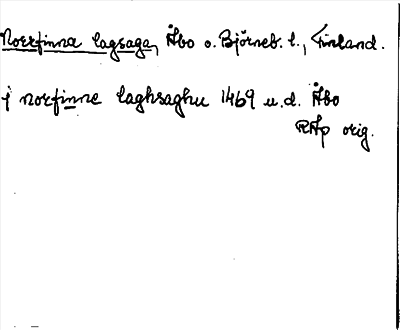 Norrfinna lagsaga, Åbo o. Björneb. l., Finland.
i norfinne laghsaghu 1469 u.d. Åbo
RAp orig.